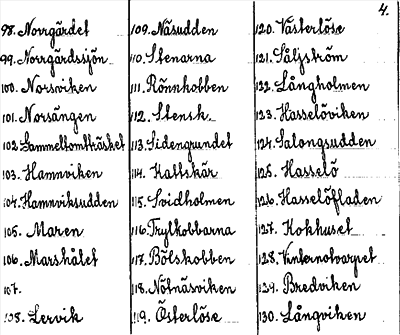 4.
98. Norrgärdet
99. Norrgärdssjön
100. Norsviken
101. Norsängen
102. Gammeltomtträsket
103. Hamnviken
104. Hamnviksudden
105. Maren
106. Marshålet
107.
108. Lervik
109. Näsudden
110. Stenarna
111. Rönnkobben
112. Stensk.
113. Sidengrundet
114. Kattskär
115. Svidholmen
116. Trylkobbarna
117. Bölskobben
118. Nötnäsviken
119. Österlöse
120. Västerlöse
121. Säljström
122. Långholmen
123. Hasselöviken
124. Salongsudden
125. Hasselö
126. Hasselöfladen
127. Kokhuset
128. Vinternotvarpet
129. Bredviken
130. Långviken